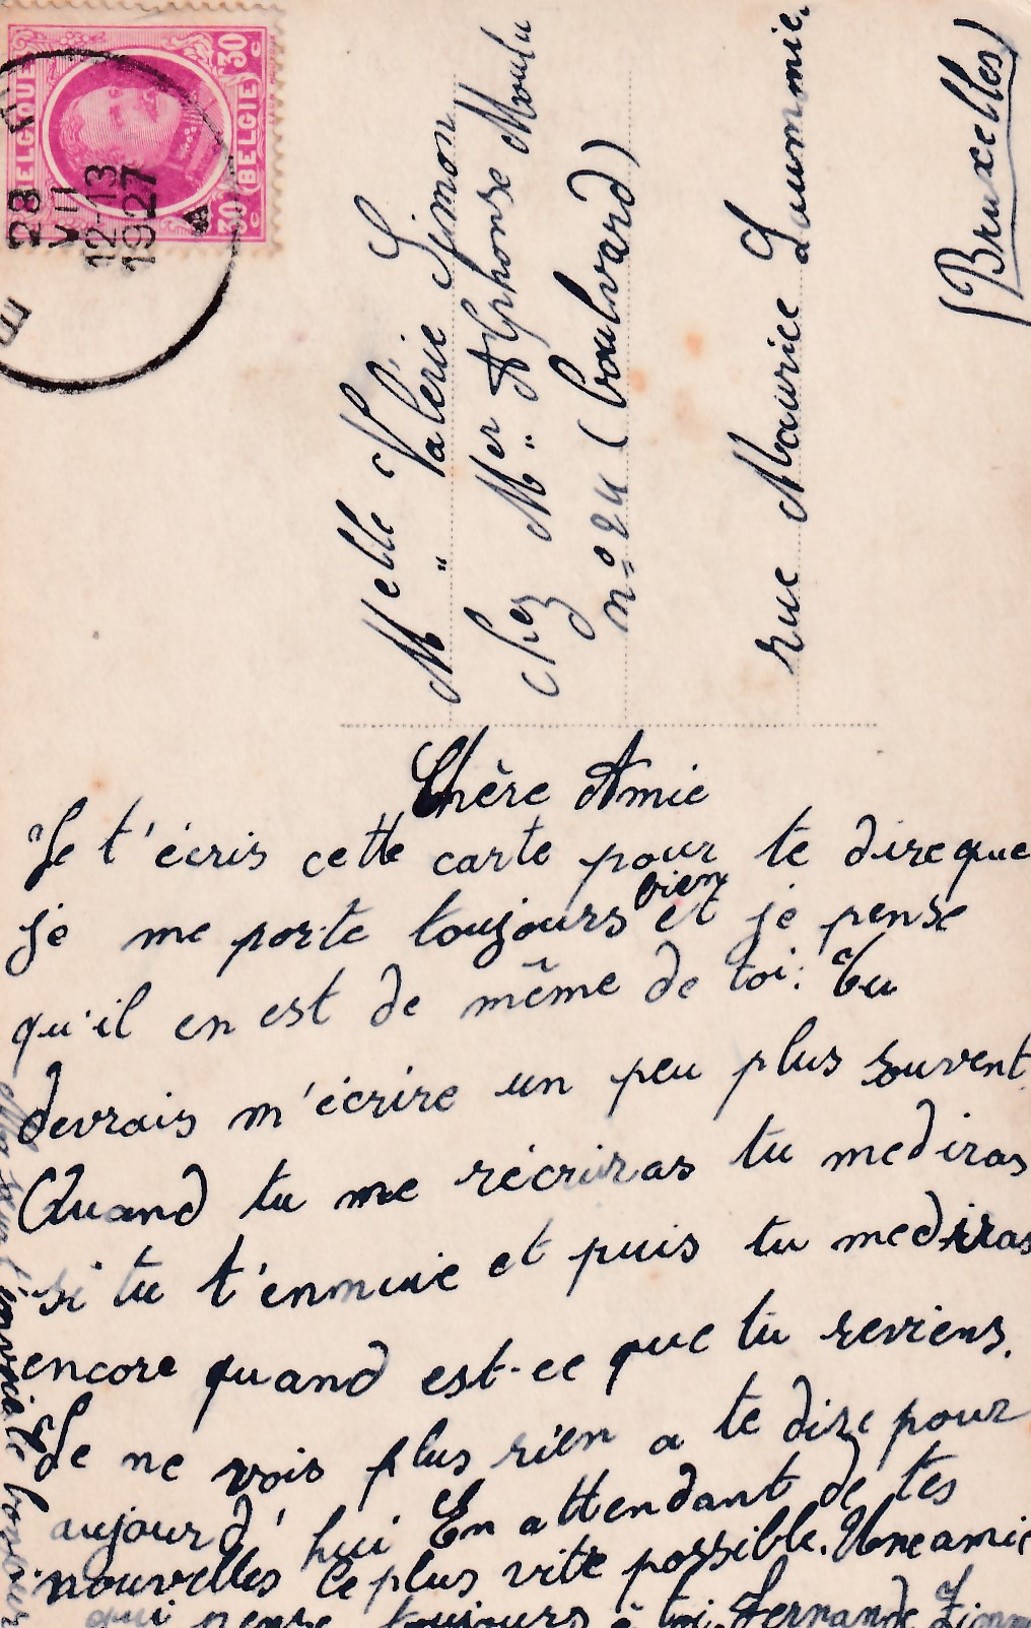 BELGIQUE
BELGIE
30 c
30 c
28
VII
12-13
1927
E
Melle Valérie Simon
chez Mer Alphonse Moulu
n° 24 (boulvard)
rue Maurice
(Bruxelles)
Chère Amie
Je t'écris cette carte pour te dire que
je me porte toujours bien et je pense
qu'il en est de même de toi. Tu
devrais m'écrire un peu plus souvent
Quand tu me récriras tu me diras
si tu t'ennuie et puis tu me diras
encore quand est-ce que tu reviens.
Je ne vois plus rien a te dire pour
aujourd'hui En attendant de tes
nouvelles le plus vite possible. Une amie
qui pense toujours à toi. Fernande